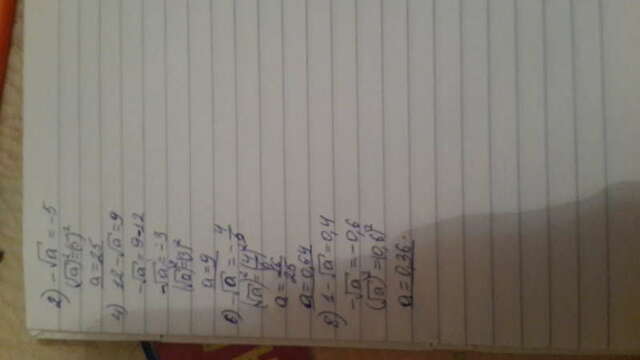 2) -√a = -5
(√a)²=(5)²
a = 25
4) 12 - √a = 9
-√a = 9-12
-√a = -3
(√a)²=(3)²
a = 9
6) -√a = -4/5
(√a)²=(4/5)²
a = 16/25
a = 0,64
8) 1 - √a = 0,4
-√a = -0,6
(√a)² = (0,6)²
a = 0,36.